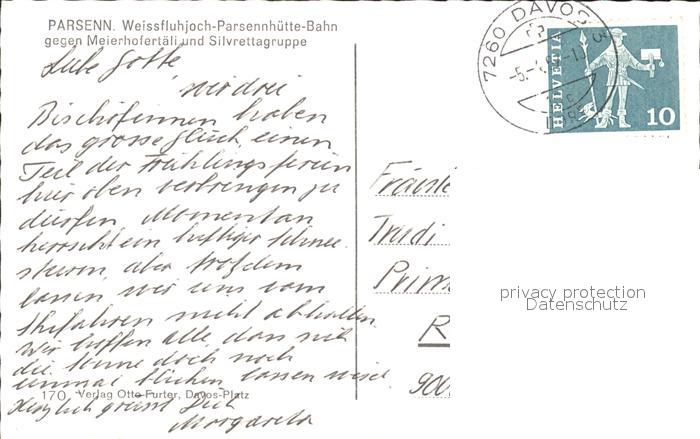 PARSENN. Weissfluhjoch-Parsennhütte-Bahn
gegen Meierhofertäli und Silvrettagruppe
Liebe Gotte,
wir drei
Bischöferinnen haben
das grosse Glück, einen
Teil der Frühlingsferien
hier oben verbringen zu
dürfen. Momentan
herrscht ein heftiger Schnee-
sturm, aber trotzdem
lassen wir uns vom
Skifahren nicht abhalten.
Wir hoffen alle, dass sich
die Sonne doch noch
einmal blicken lassen wird.
170 Verlag Otto Furter, Davos-Platz
Herzlich grüsst Dich
Margareta
7260 DAVOS 3
HELVETIA
10
Fräule
Trudi
Prim
R
900
privacy protection
Datenschutz